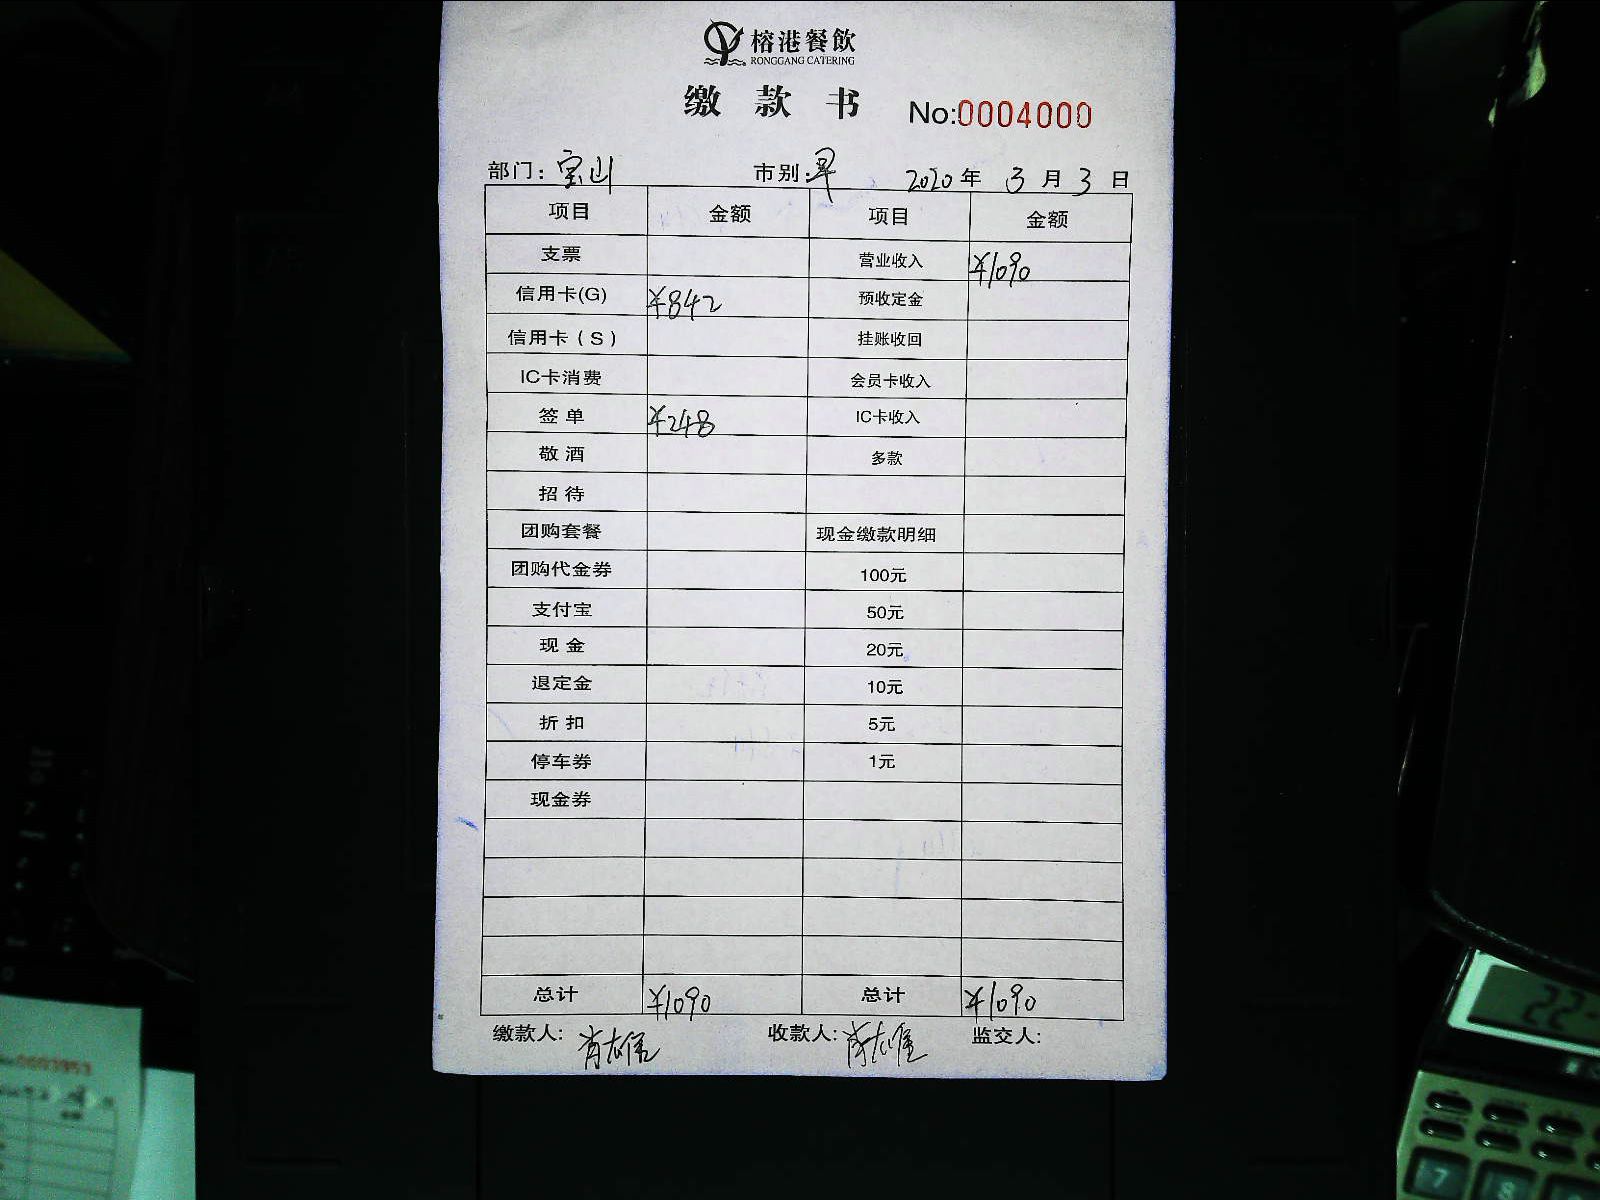 榕港餐飲
RONGGANG CATERING
缴款书 No:0004000
部门：宝山 市别：早 2020年3月3日
项目 金额 项目 金额
支票 营业收入 ¥1090
信用卡(G) ¥842 预收定金
信用卡（S） 挂账收回
IC卡消费 会员卡收入
签单 ¥248 IC卡收入
敬酒 多款
招待
团购套餐 现金缴款明细
团购代金券 100元
支付宝 50元
现金 20元
退定金 10元
折扣 5元
停车券 1元
现金券
总计 ¥1090 总计 ¥1090
缴款人: 收款人: 监交人:
0003953
22
7 8